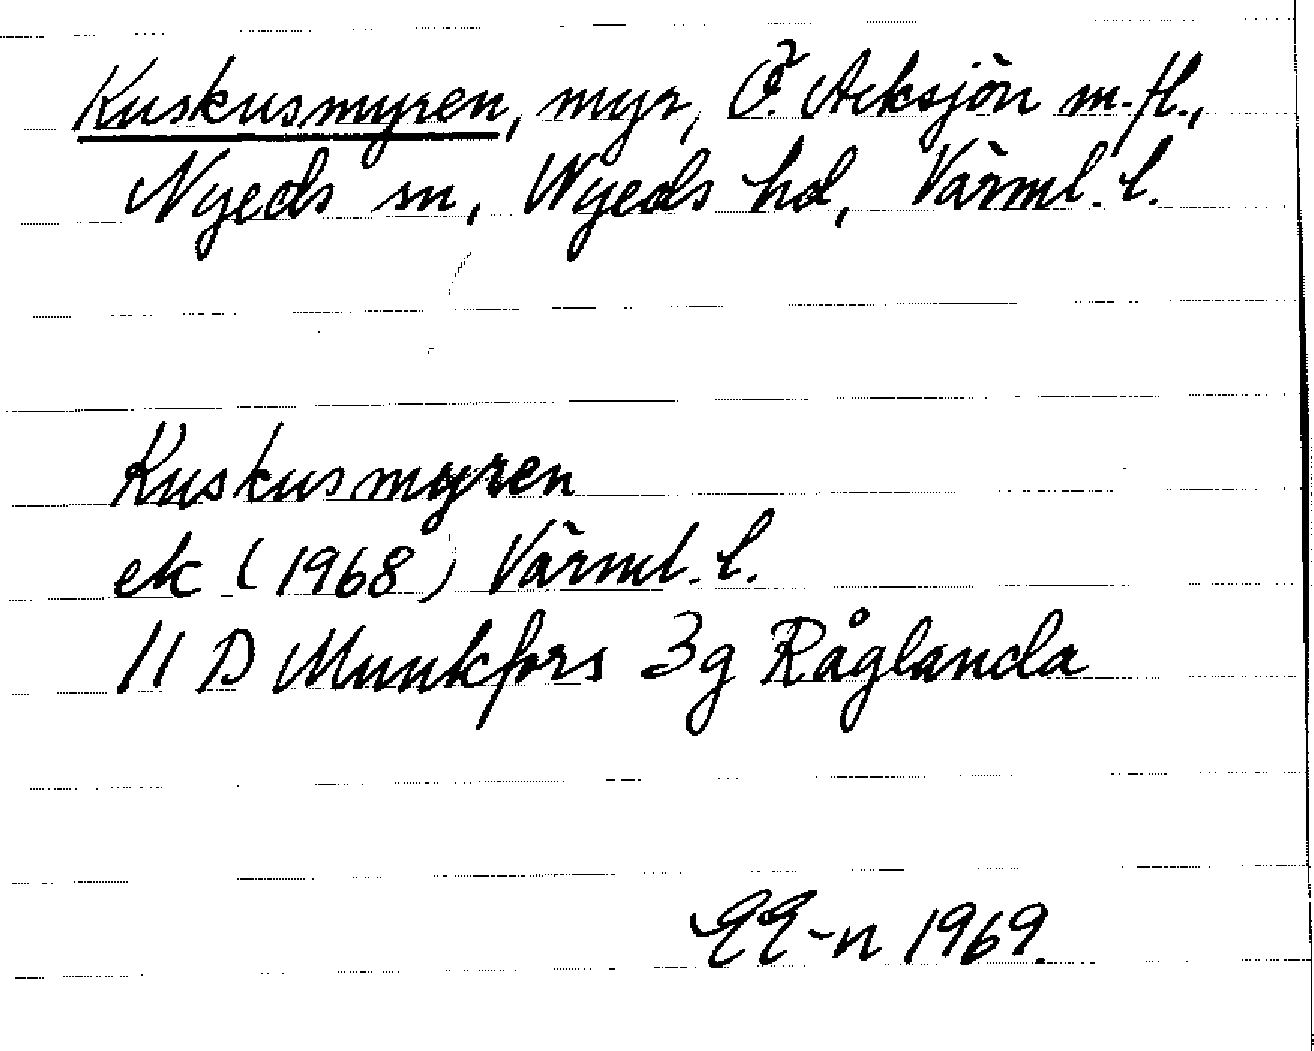 Kuskusmyren, myr, Ö. Acksjön m.fl.,
Nyeds sn, Nyeds hd, Värml. l.
Kuskusmyren
ek (1968) Värml. l.
11 D Munkfors 3g Råglanda
EE-n 1969.